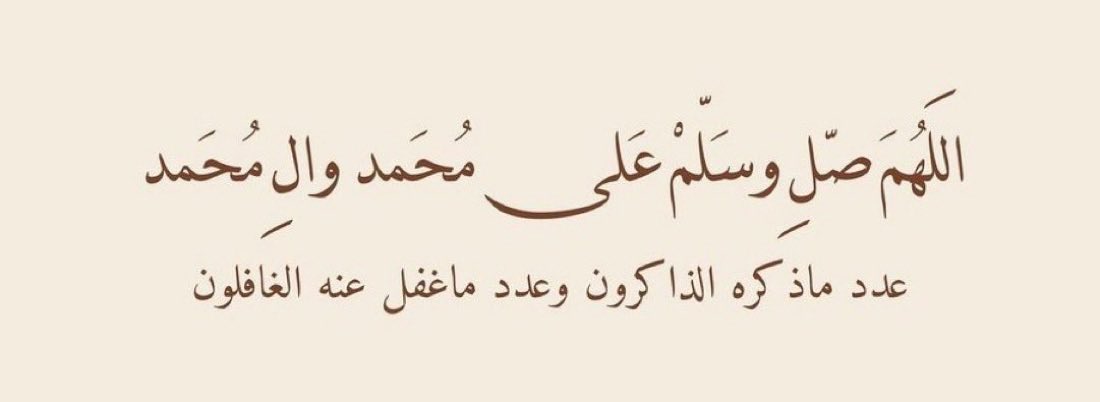 اللهُمَ صّلِ وسَلّمْ عَلى مُحَمد والِ مُحَمد
عدد ماذكره الذاكرون وعدد ماغفل عنه الغافلون